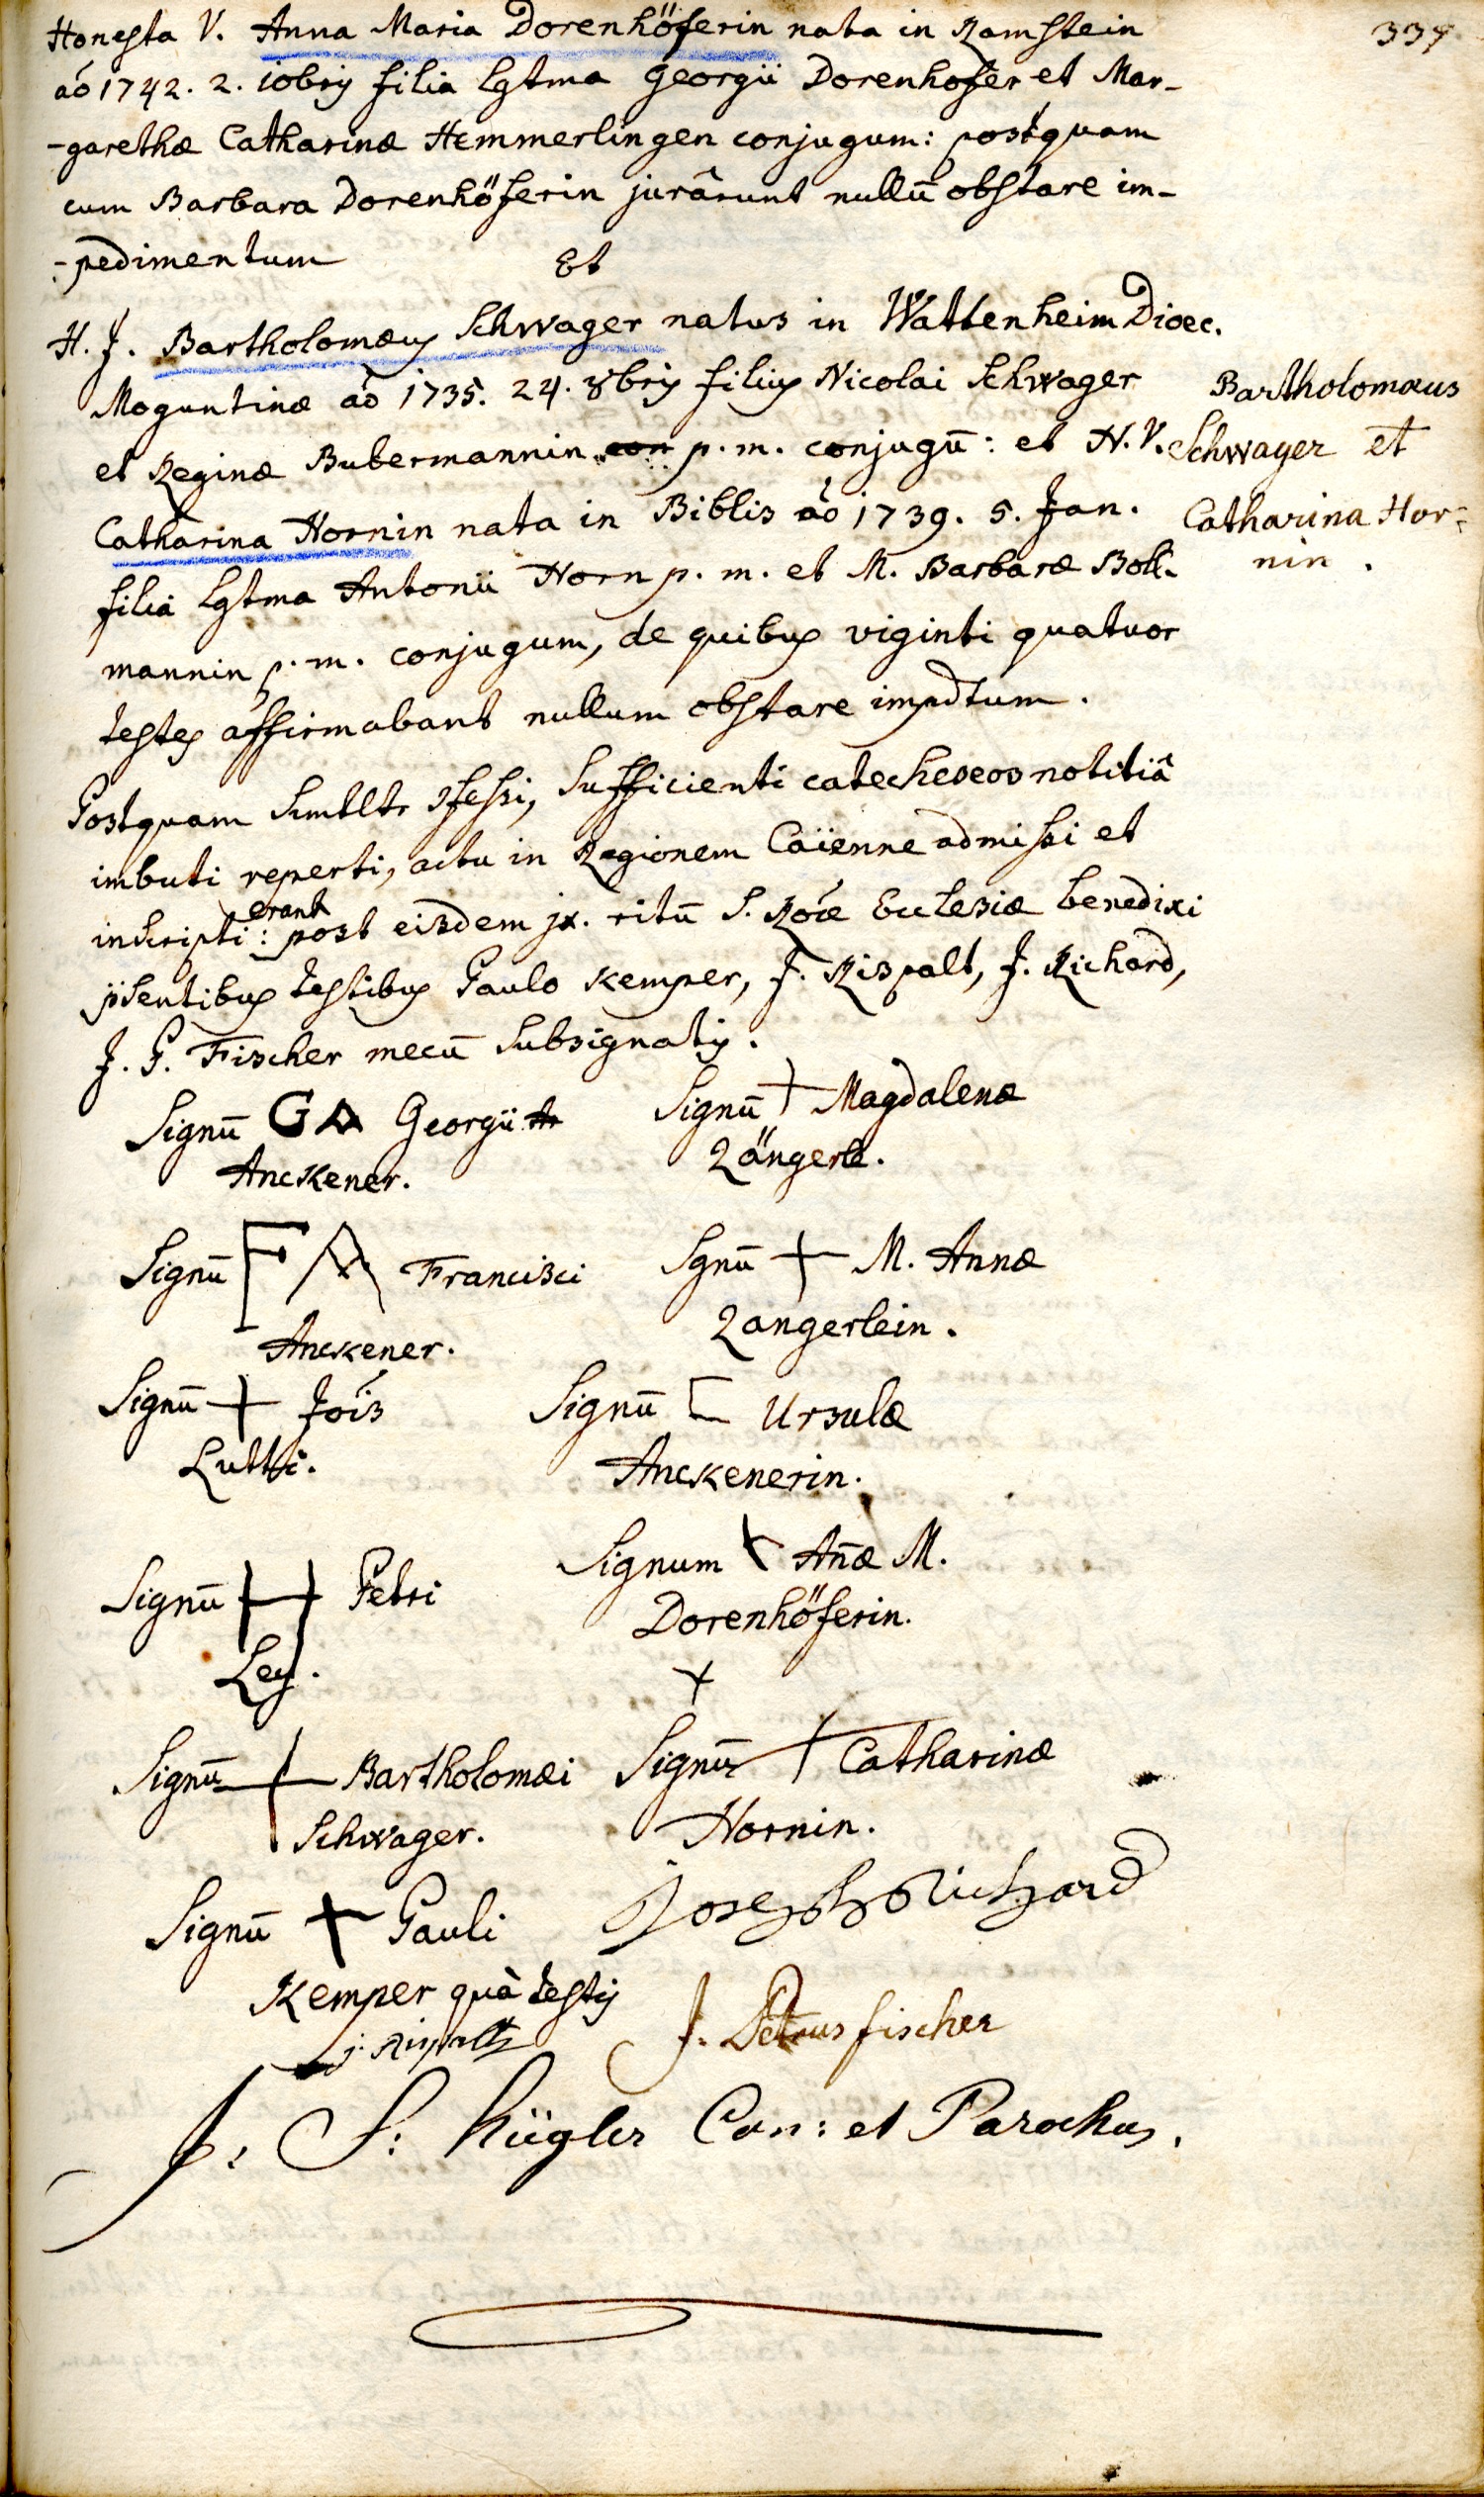 337
Honesta V. Anna Maria Dorenhöferin nata in Ramstein
aō 1742. 2. iobris filia lgtma Georgii Dorenhofer et Mar-
-garethæ Catharinæ Hemmerlingen conjugum: postquam
cum Barbara Dorenhöferin jurârunt nullū obstare im-
-pedimentum
Et
H. J. Bartholomæus Schwager natus in Wattenheim Dioec.
Moguntinæ aō 1735. 24. 8bris filius Nicolai Schwager
et Reginæ Bubermannin con p. m. conjugū: et H. V.
Catharina Hornin nata in Biblis aō 1739. 5. Jan.
filia lgtma Antonii Horn p. m. et M. Barbaræ Boll-
mannin p. m. conjugum, de quibus viginti quatuor
testes affirmabant nullum obstare impdtum.
Bartholomæus
Schwager et
Catharina Hor=
nin.
Postquam Simllr 9fessi, sufficienti catecheseos notitiâ
imbuti reperti, actu in Regionem Caïenne admissi et
inscripti erant: post eisdem jx. ritū S. Roæ Ecclesiæ benedixi
p̄sentibus testibus Paulo Kemper, J. Rispalt, J. Richard,
J. P. Fischer mecū subsignatis.
Signū GA Georgii An
Anckener.
Signū + Magdalenæ
Zängerle.
Signū FA Francisci
Anckener.
Sgnū + M. Annæ
Zangerlein.
Signū + Jōis
Luttri.
Signū [ Ursulæ
Anckenerin.
Signū H Petri
Ley.
Signum + An̄æ M.
Dorenhöferin.
+
Signū + Bartholomæi
Schwager.
Signū + Catharinæ
Hornin.
Signū + Pauli
Kemper quà testis
Joseph Richard
j. Rispalt
J. Petrus fischer
J. S: Kügler Can: et Parochus.